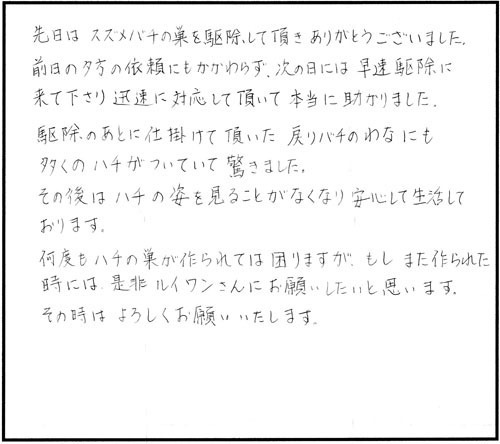 先日は スズメバチの巣を駆除して頂き ありがとうございました。
前日の夕方の依頼にもかかわらず、次の日には 早速駆除に
来て下さり 迅速に対応して頂いて 本当に助かりました。
駆除のあとに仕掛けて頂いた 戻りバチのわなにも
多くの ハチがついていて 驚きました。
その後は ハチの姿を見ることがなくなり 安心して生活して
おります。
何度もハチの巣が作られては 困りますが、もし また作られた
時には、是非 ルイワンさんにお願いしたいと思います。
その時は よろしくお願いいたします。